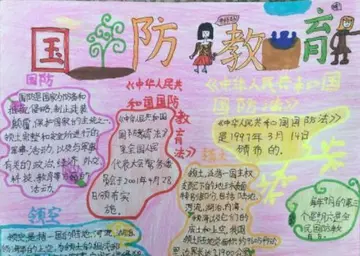 国防教育
国防
国防是国家为防备和
抵抗侵略,制止武装
颠覆,保卫国家的主权,
领土完整和安全所进行的
军事活动,以及与军事
有关的政治,经济,外交,
科技,教育等方面的
活动。
《中华人民共
和国国防
教育法》
《中华人民共和
国国防教育法》
是全国人民
代表大会常务委
员会于2001年4月28
日颁布实
施。
《中华人民共和国
国防法》
《中华人民共和国国防法》
是1997年3月14日
颁布的。
领土
领土,是指一国主权
支配下的地球表面
的特定部分,包括陆地,
河流,湖泊,内海,
领海以及它们的
底土和上空,我国
每年9月的第三
个星期六是全
民国防教育
日。
领空
领空是指一国的陆地,河流,湖泊